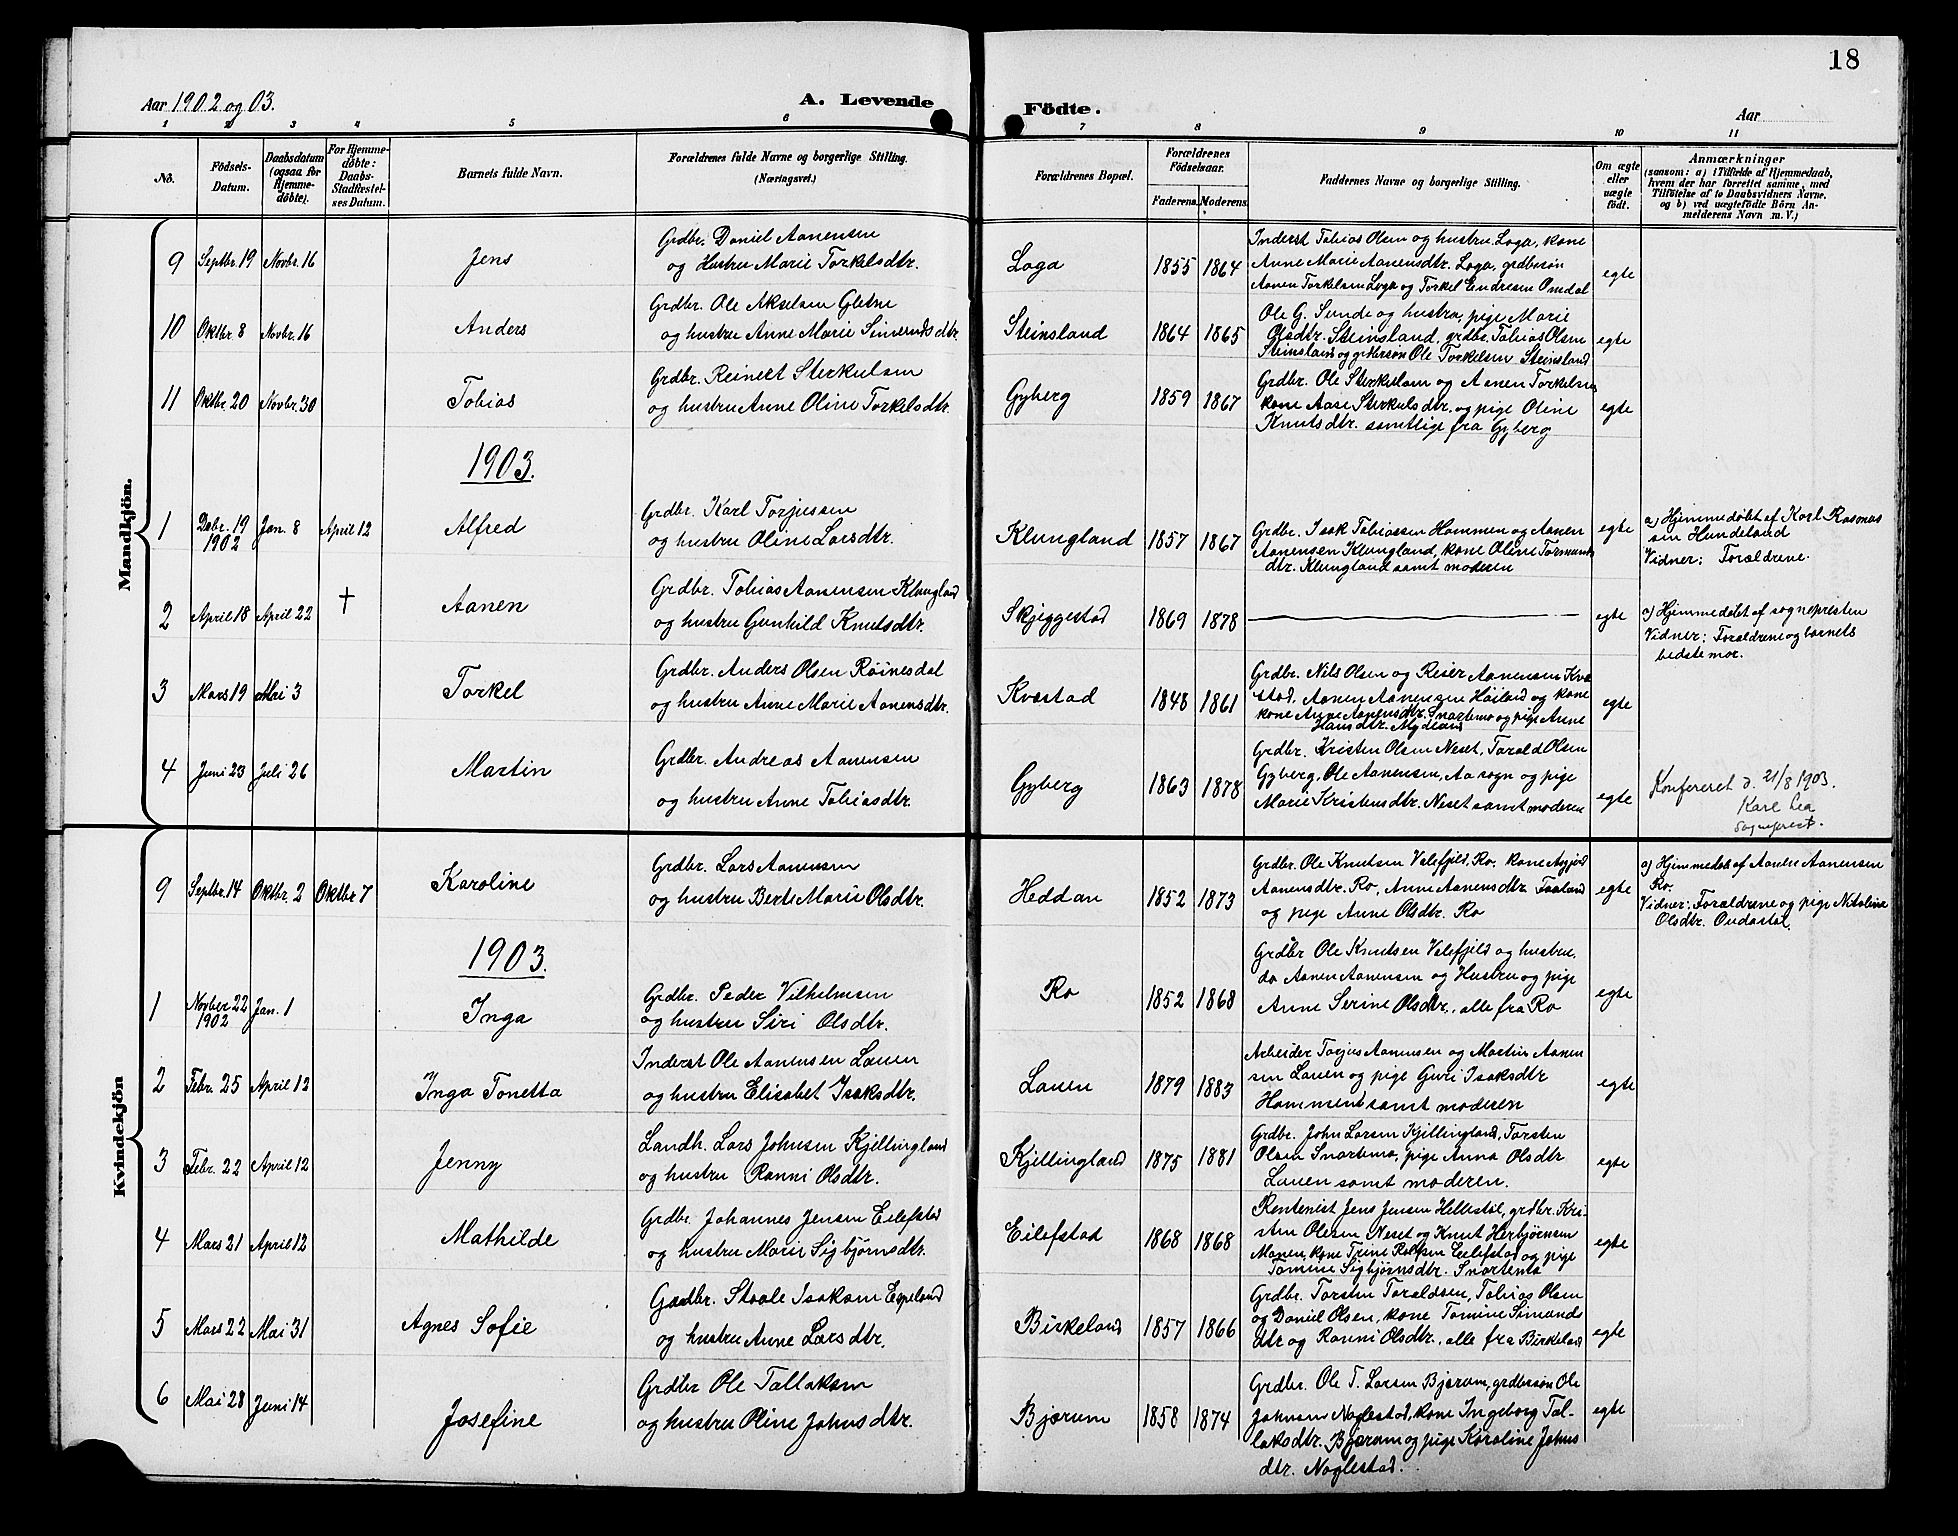 18
Aar 1902 og 03.
A. Levende
Födte.
Aar
1 2 3 4 5 6 7 8 9 10 11
No.
Födsels-
Datum.
Daabsdatum
(ogsaa for
Hjemme-
döbte).
For Hjemme-
döbte:
Daabs-
Stadfæstel-
ses Datum.
Barnets fulde Navn.
Forældrenes fulde Navne og borgerlige Stilling.
(Næringsvei.)
Forældrenes Bopæl.
Forældrenes
Födselsaar.
Faderens. Moderens.
Faddernes Navne og borgerlige Stilling.
Om ægte
eller
uægte
födt.
Anmærkninger
(saasom: a) i Tilfælde af Hjemmedaab,
hvem der har forrettet samme, med
Tilföielse af to Daabsvidners Navne.
og b) ved uægtefödte Börn An-
melderens Navn m. V.)
Mandkjön.
9 Septbr. 19 Novbr. 16 Jens
Grdbr. Daniel Aanensen
og Hustru Marie Torkelsdtr.
Loga 1855 1864
Inderst Tobias Olsen og hustru Loga, kone
Anne Marie Aanensdtr. Loga, grdbrsøn
Aanen Torkelsen Loga og Torkel Endresen Omdal
egte
10 Oktbr. 8 Novbr. 16 Anders
Grdbr. Ole Akselsen Gletne
og hustru Anne Marie Simensdtr.
Steinsland 1864 1865
Ole G. Sunde og hustru, pige Marie
Olsdtr. Steinsland, grdbr. Tobias Olsen
Steinsland og grdbrsøn Ole Torkelsen Steinsland
egte
11 Oktbr. 20 Novbr. 30 Tobias
Grdbr. Reinert Sterkulsen
og hustru Anne Oline Torkelsdtr.
Gyberg 1859 1867
Grdbr. Ole Sterkulsen og Aanen Torkelsen
kone Aase Sterkulsdtr. og pige Oline
Knutsdtr. samtlige fra Gyberg
egte
1903.
1 Debr. 19 1902 Jan. 8 April 12 Alfred
Grdbr. Karl Torjussen
og hustru Oline Larsdtr.
Klungland 1857 1867
Grdbr. Isak Tobiassen Hammen og Aanen
Aanensen Klungland, kone Oline Tormunds
dtr. Klungland samt moderen
egte
a) Hjemmedøbt af Karl Rasmus
sen Hundeland
Vidner: Forældrene.
2 April 18 April 22 † Aanen
Grdbr. Tobias Aanensen Klungland
og hustru Gunhild Knutsdtr.
Skjeggestad 1869 1878
egte
a) Hjemmedøbt af sognepresten
Vidner: Forældrene og barnets
bedstemor.
3 Mars 19 Mai 3 Torkel
Grdbr. Anders Olsen Røinesdal
og hustru Anne Marie Aanensdtr.
Kvastad 1848 1861
Grdbr. Nils Olsen og Reier Aanensen Kva
stad. Aanen Aanensen Høiland og kone
kone Anne Aanensdtr. Snartemo og pige Anne
Hansdtr. Mydland
egte
4 Juni 23 Juli 26 Martin
Grdbr. Andreas Aanensen
og hustru Anne Tobiasdtr.
Gyberg 1863 1878
Grdbr. Kristen Olsen Neset, Torald Olsen
Gyberg, Ole Aanensen, Aa sogn og pige
Marie Kristensdtr. Neset samt moderen
egte
Konfereret d. 21/8 1903.
Karl Lea
sogneprest.
Kvindekjön
9 Septbr. 14 Oktbr. 2 Oktbr 7 Karoline
Grdbr. Lars Aanensen
og hustru Berte Marie Olsdtr.
Heddan 1852 1873
Grdbr. Ole Knutsen Velefjeld, Ro, kone Asgjerd
Aanensdtr. Ro, Anne Aanensdtr Faaland
og pige Anne Olsdtr. Ro
egte
a) Hjemmedøbt af Aanen Aanensen
Ro.
Vidner: Forældrene og pige Nikoline
Olsdtr. Oudastal.
1903.
1 Novber 22 1902 Jan. 1 Inga
Grdbr. Peder Vilhelmsen
og hustru Siri Olsdtr.
Ro 1852 1868
Grdbr Ole Knutsen Velefjeld og hustru,
do Aanen Aanensen og Hustru og pige
Anne Serine Olsdtr., alle fra Ro
egte
2 Febr. 25 April 12 Inga Tonetta
Inderst Ole Aanensen Lauen
og hustru Elisabet Isaksdtr.
Lauen 1879 1883
Arbeider Torjus Aanensen og Martin Aanen
sen Lauen og pige Guri Isaksdtr
Hammen samt moderen
egte
3 Febr. 22 April 12 Jenny
Landh. Lars Johnsen Kjellingland
og hustru Ranni Olsdtr.
Kjellingland 1875 1881
Grdbr. John Larsen Kjellingland, Torsten
Olsen Snartemo, pige Anna Olsdtr
Lauen samt moderen.
egte
4 Mars 21 April 12 Mathilde
Grdbr. Johannes Jensen Eilefstad
og hustru Marie Sigbjørnsdtr.
Eilefstad 1868 1868
Rentenist Jens Jensen Hellestøl, grdbr. Kri-
sten Olsen Neset og Knut Herbjørnsen
Monen, kone Trine Rolfsen Eilefstad og pige
Tomine Sigbjørnsdtr. Snartemo
egte
5 Mars 22 Mai 31 Agnes Sofie
Gaardbr. Staale Isaksen Espeland
og hustru Anne Larsdtr.
Birkeland 1857 1866
Grdbr. Torsten Toraldsen, Tobias Olsen
og Daniel Olsen, kone Tomine Simonds
dtr og Ranni Olsdtr., alle fra Birkeland
egte
6 Mai 28 Juni 14 Josefine
Grdbr Ole Tallaksen
og hustru Oline Johnsdtr.
Bjærum 1858 1874
Grdbr. Ole T. Larsen Bjærum, grdbrsøn Ole
Johnsen Naglestad, kone Ingeborg Tal-
laksdtr. Bjærum og pige Karoline Johns
dtr. Naglestad.
egte